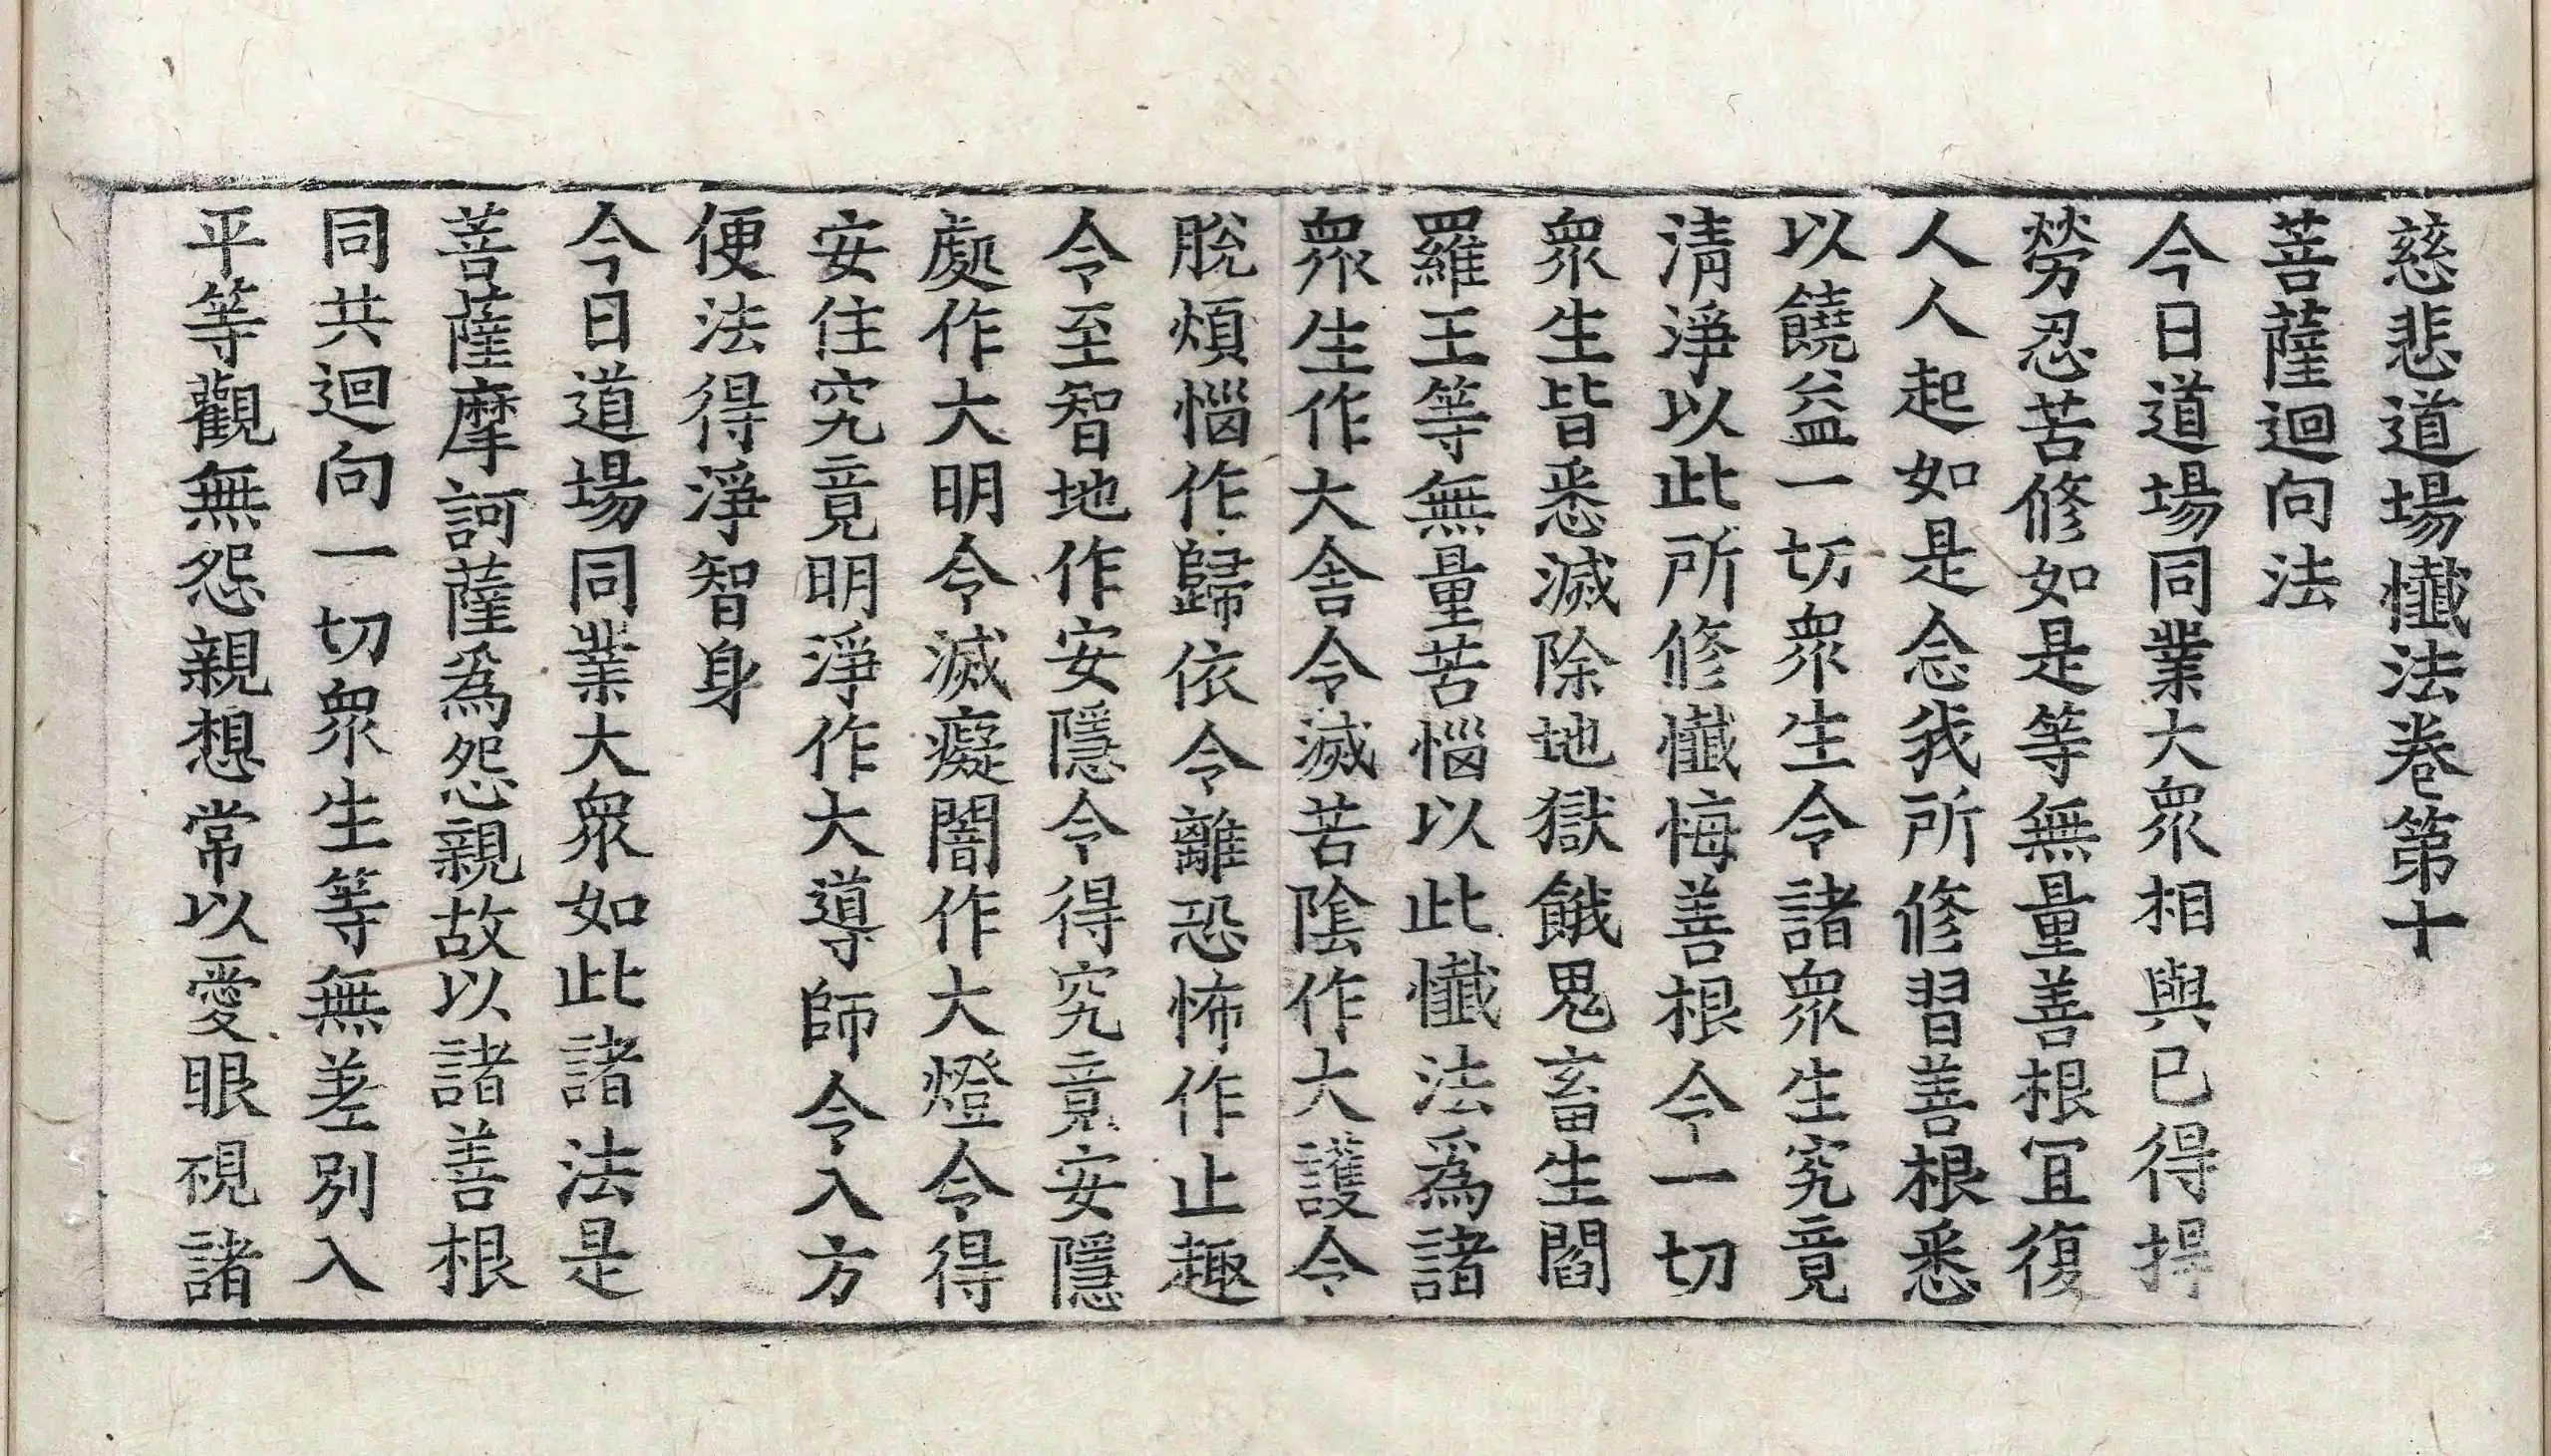 慈悲道場懺法卷第十
菩薩迴向法
今日道場同業大衆相與已得捍
勞忍苦修如是等無量善根冝復
人人起如是念我所修習善根悉
以饒益一切衆生令諸衆生究竟
清淨以此所修懺悔善根令一切
衆生皆悉滅除地獄餓鬼畜生閻
羅王等無量苦惱以此懺法爲諸
衆生作大舍令滅苦陰作大護令
脫煩惱作歸依令離恐怖作止趣
令至智地作安隱令得究竟安隱
處作大明令滅癡闇作大燈令得
安住究竟明淨作大導師令入方
便法得淨智身
今日道場同業大衆如此諸法是
菩薩摩訶薩爲怨親故以諸善根
同共迴向一切衆生等無差別入
平等觀無怨親想常以愛眼視諸